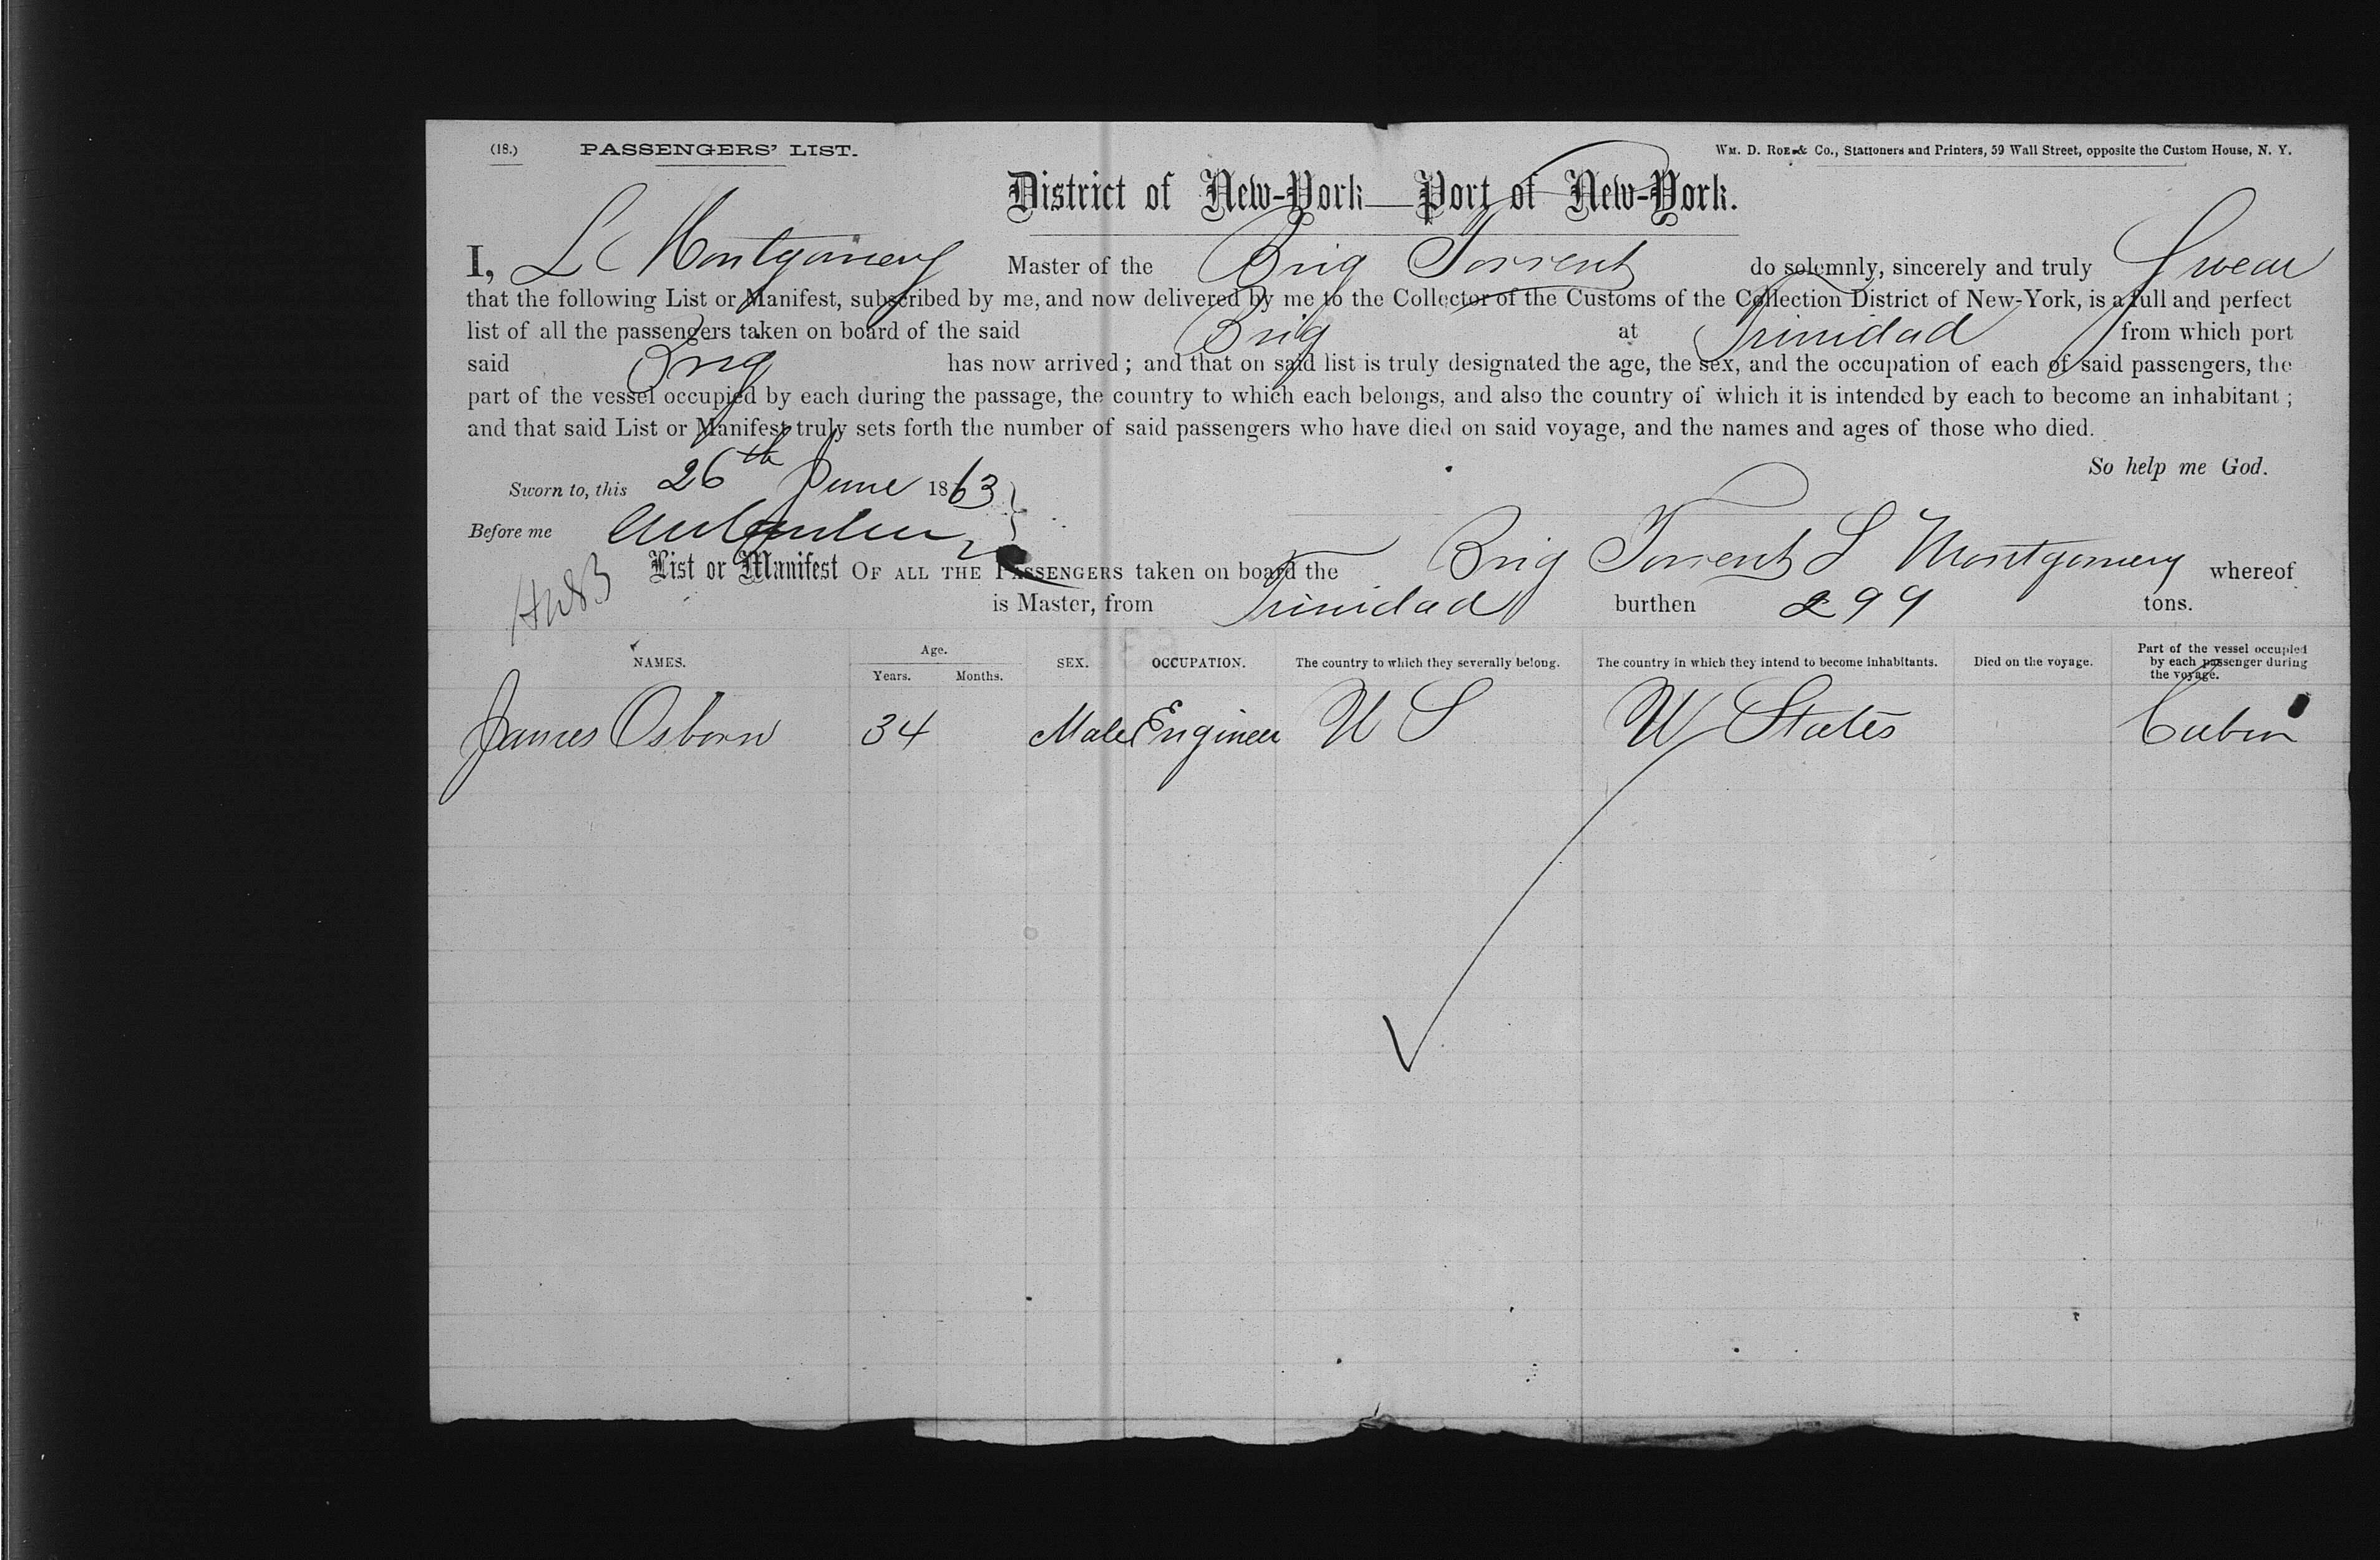 (18.) PASSENGERS' LIST. Wm. D. Roe & Co., Stationers and Printers, 59 Wall Street, opposite the Custom House, N. Y.
District of New-York—Port of New-York.
I, L Montgomery Master of the Brig Torrent do solemnly, sincerely and truly Swear
that the following List or Manifest, subscribed by me, and now delivered by me to the Collector of the Customs of the Collection District of New-York, is a full and perfect
list of all the passengers taken on board of the said Brig at Trinidad from which port
said Brig has now arrived; and that on said list is truly designated the age, the sex, and the occupation of each of said passengers, the
part of the vessel occupied by each during the passage, the country to which each belongs, and also the country of which it is intended by each to become an inhabitant;
and that said List or Manifest truly sets forth the number of said passengers who have died on said voyage, and the names and ages of those who died.
So help me God.
Sworn to, this 26th June 1863
Before me
List or Manifest OF ALL THE PASSENGERS taken on board the Brig Torrent L Montgomery whereof
is Master, from Trinidad burthen 299 tons.
NAMES. Age. Years. Months. SEX. OCCUPATION. The country to which they severally belong. The country in which they intend to become inhabitants. Died on the voyage. Part of the vessel occupied by each passenger during the voyage.
James Osborn 34 Male Engineer U S U States Cabin